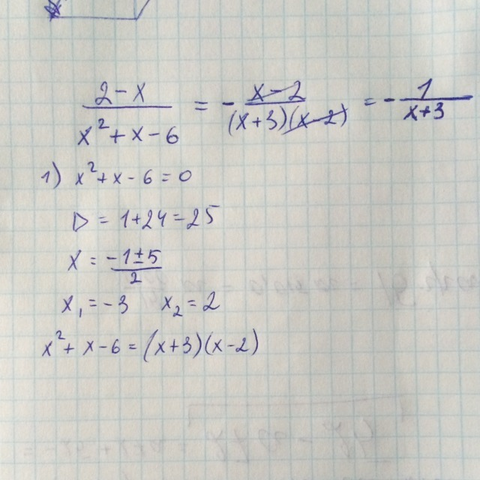 (2-x)/(x²+x-6) = -(x-2)/((x+3)(x-2)) = -1/(x+3)
1) x²+x-6=0
D = 1+24=25
x = (-1±5)/2
x₁=-3 x₂=2
x²+x-6=(x+3)(x-2)